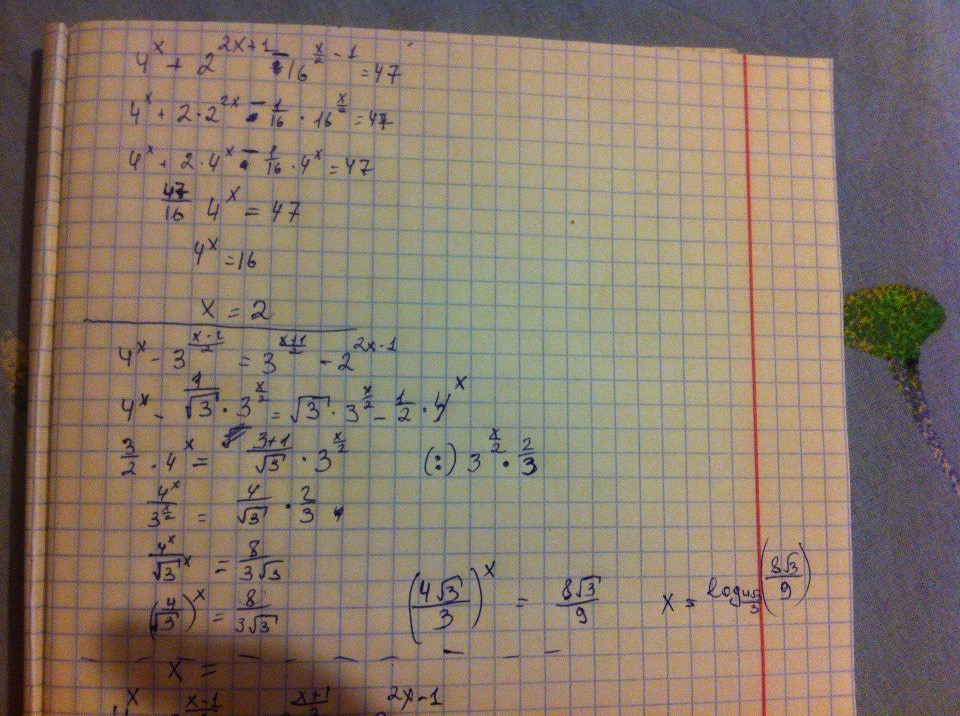 4^x + 2^(2x+1) - 16^(x/2 - 1) = 47
4^x + 2 · 2^(2x) - 1/16 · 16^(x/2) = 47
4^x + 2 · 4^x - 1/16 · 4^x = 47
47/16 4^x = 47
4^x = 16
x = 2
4^x - 3^((x-1)/2) = 3^((x+1)/2) - 2^(2x-1)
4^x - 1/√3 · 3^(x/2) = √3 · 3^(x/2) - 1/2 · 4^x
3/2 · 4^x = (3+1)/√3 · 3^(x/2) (:) 3^(x/2) · 2/3
4^x/3^(x/2) = 4/√3 · 2/3
4^x/√3^x = 8/(3√3)
(4/√3)^x = 8/(3√3) (4√3/3)^x = 8√3/9 x = log_(4√3/3) (8√3/9)
x =